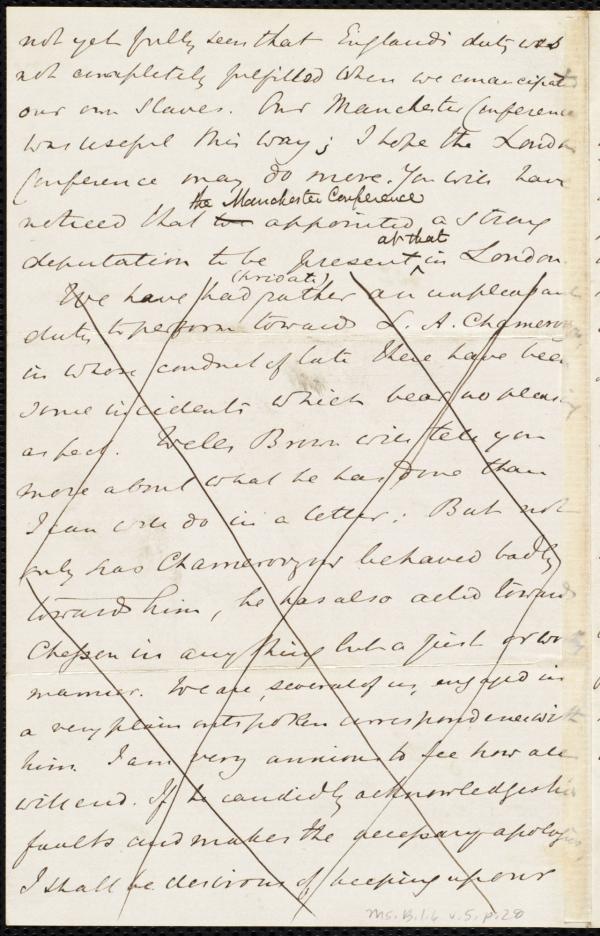 not yet fully seen that England's duty was
not completely fulfilled when we emancipated
our own Slaves. Our Manchester Conference
was useful this way; I hope the London
Conference may do more. You will have
the Manchester Conference
noticed that we appointed a strong
at that
deputation to be present in London.
(private)
We have had rather an unpleasant
duty to perform towards L. A. Chamerovzow,
in whose conduct of late there have been
some incidents which bear no pleasing
aspect. Wells Brown will tell you
more about what he has done than
I can well do in a letter: But not
only has Chamerovzow behaved badly
towards him, he has also acted towards
Chesson in any thing but a just or worthy
manner. We are, several of us, engaged in
a very plain outspoken correspondence with
him. I am very anxious to see how all
will end. If he candidly acknowledges his
faults and makes the necessary apologies,
I shall be desirous of keeping up our
Ms. B. 1. 6 v. 5. p. 28